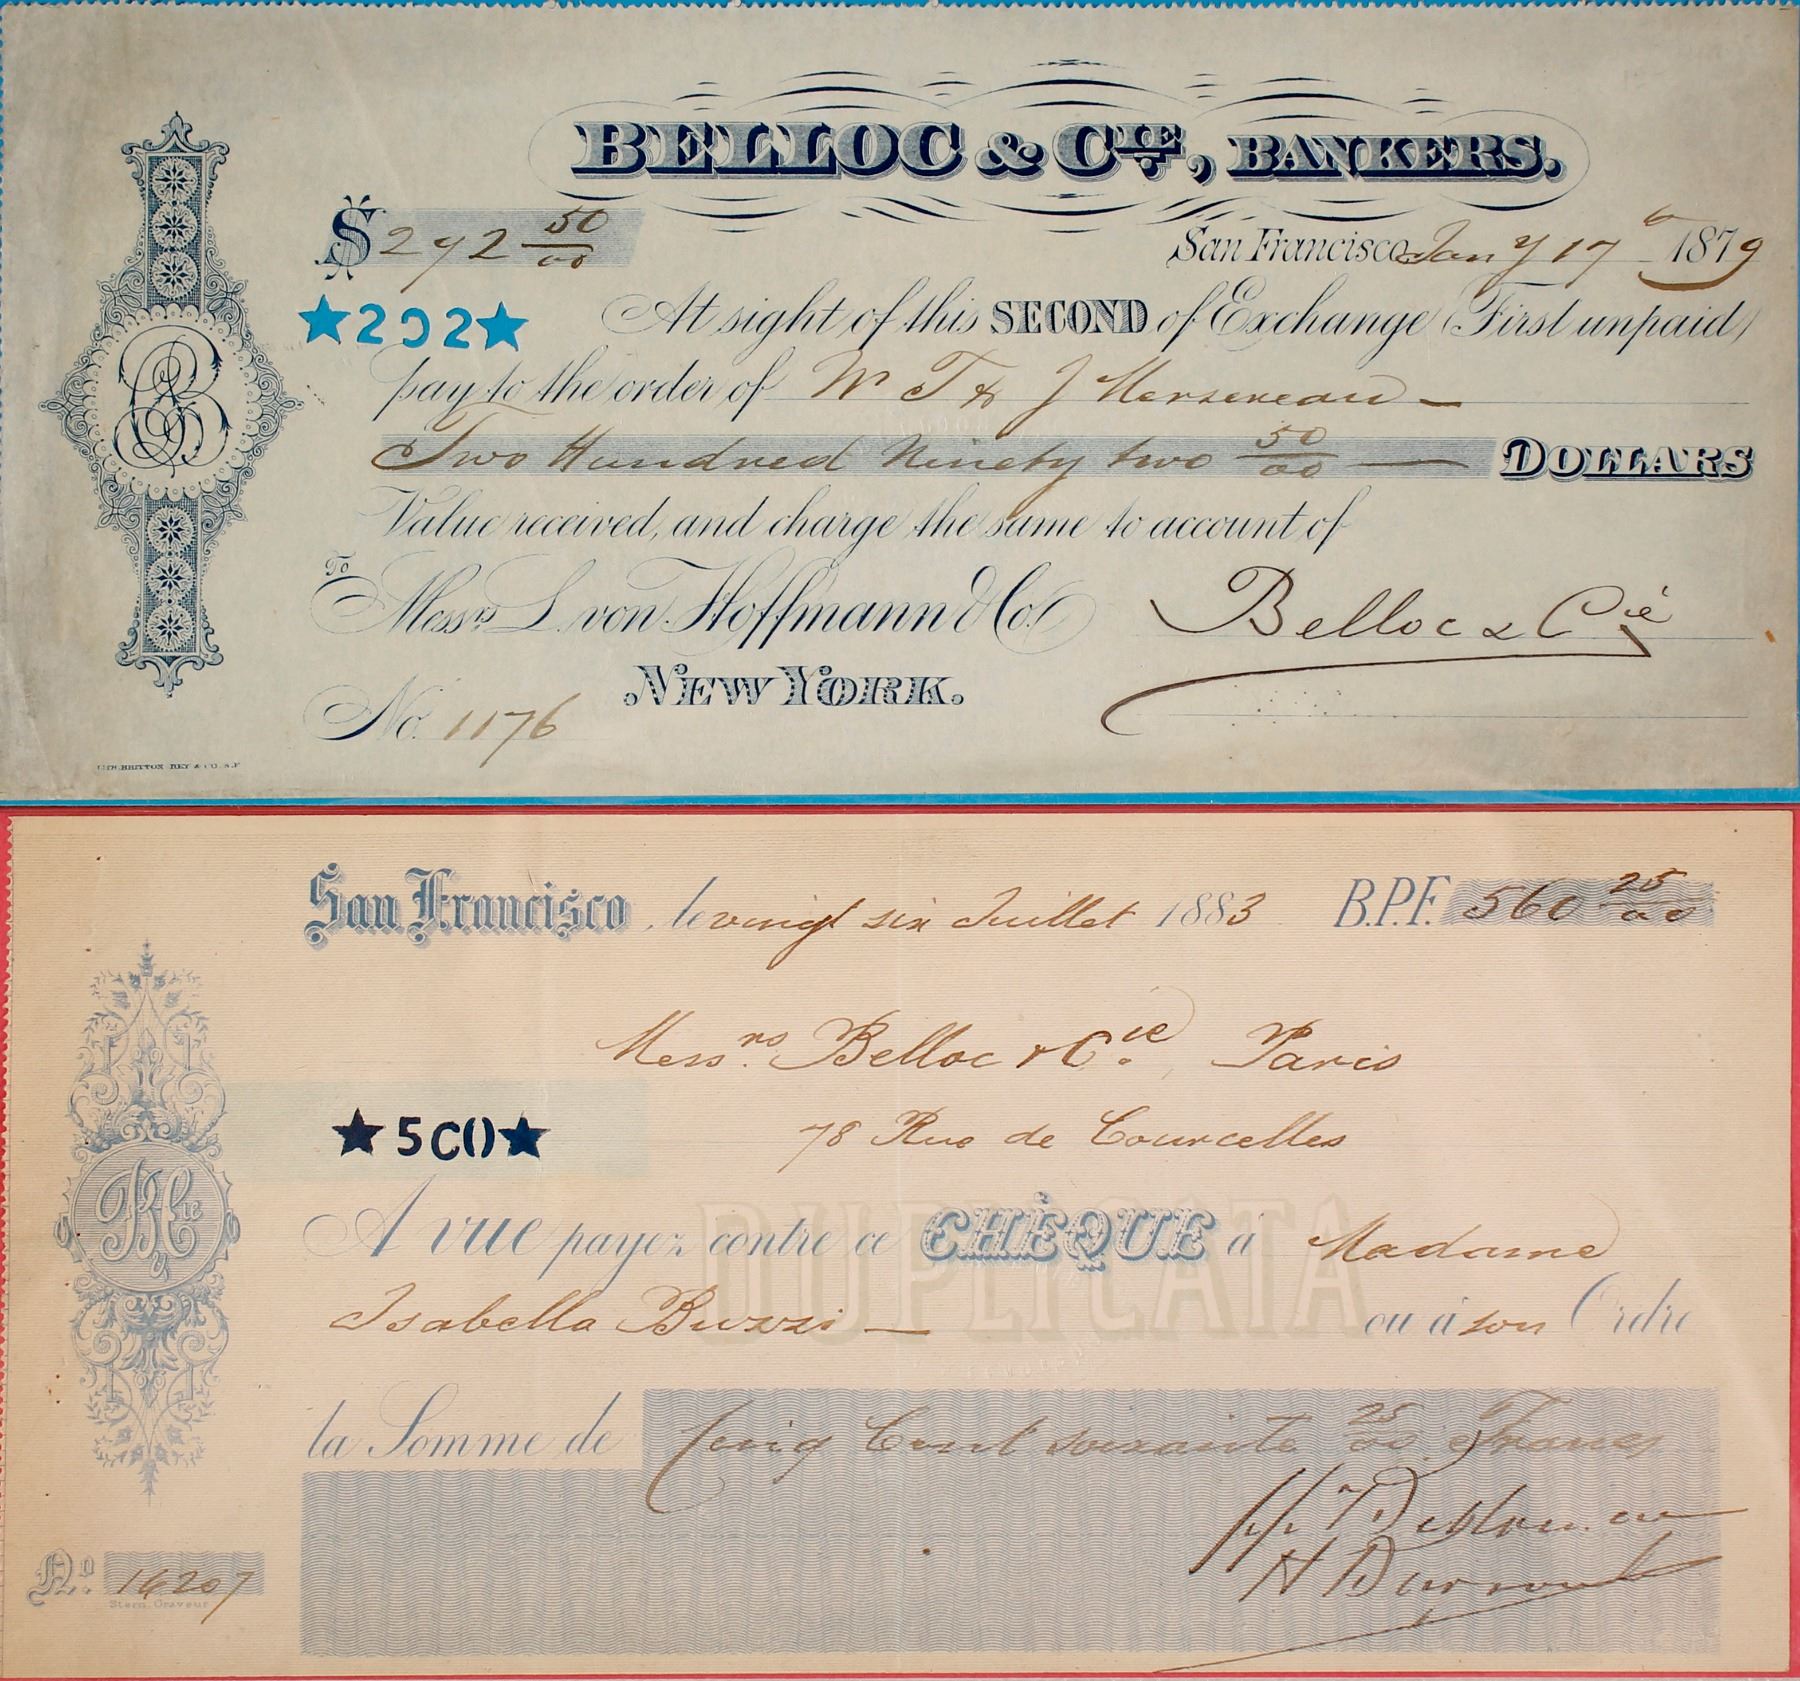 BELLOC & CIE, BANKERS.
$ 292 50/00
San Francisco Jany 17th 1879
★292★
At sight of this SECOND of Exchange (First unpaid)
pay to the order of W T & J Mersereau
Two Hundred Ninety two 50/00 DOLLARS
Value received, and charge the same to account of
To Messrs L. von Hoffmann & Co.
Belloc & Cie
NEW YORK.
No. 1176
LITH. BRITTON REY & CO. S.F
San Francisco, le vingt six Juillet 1883 B.P.F. 560 25/00
Messrs. Belloc & Cie, Paris
78 Rue de Courcelles
★560★
A VUE payez contre ce CHÈQUE à Madame
DUPLICATA
Isabella Buzzi ou à son Ordre
la Somme de Cinq Cent soixante 25/00 Francs
No. 16207
Stern Graveur